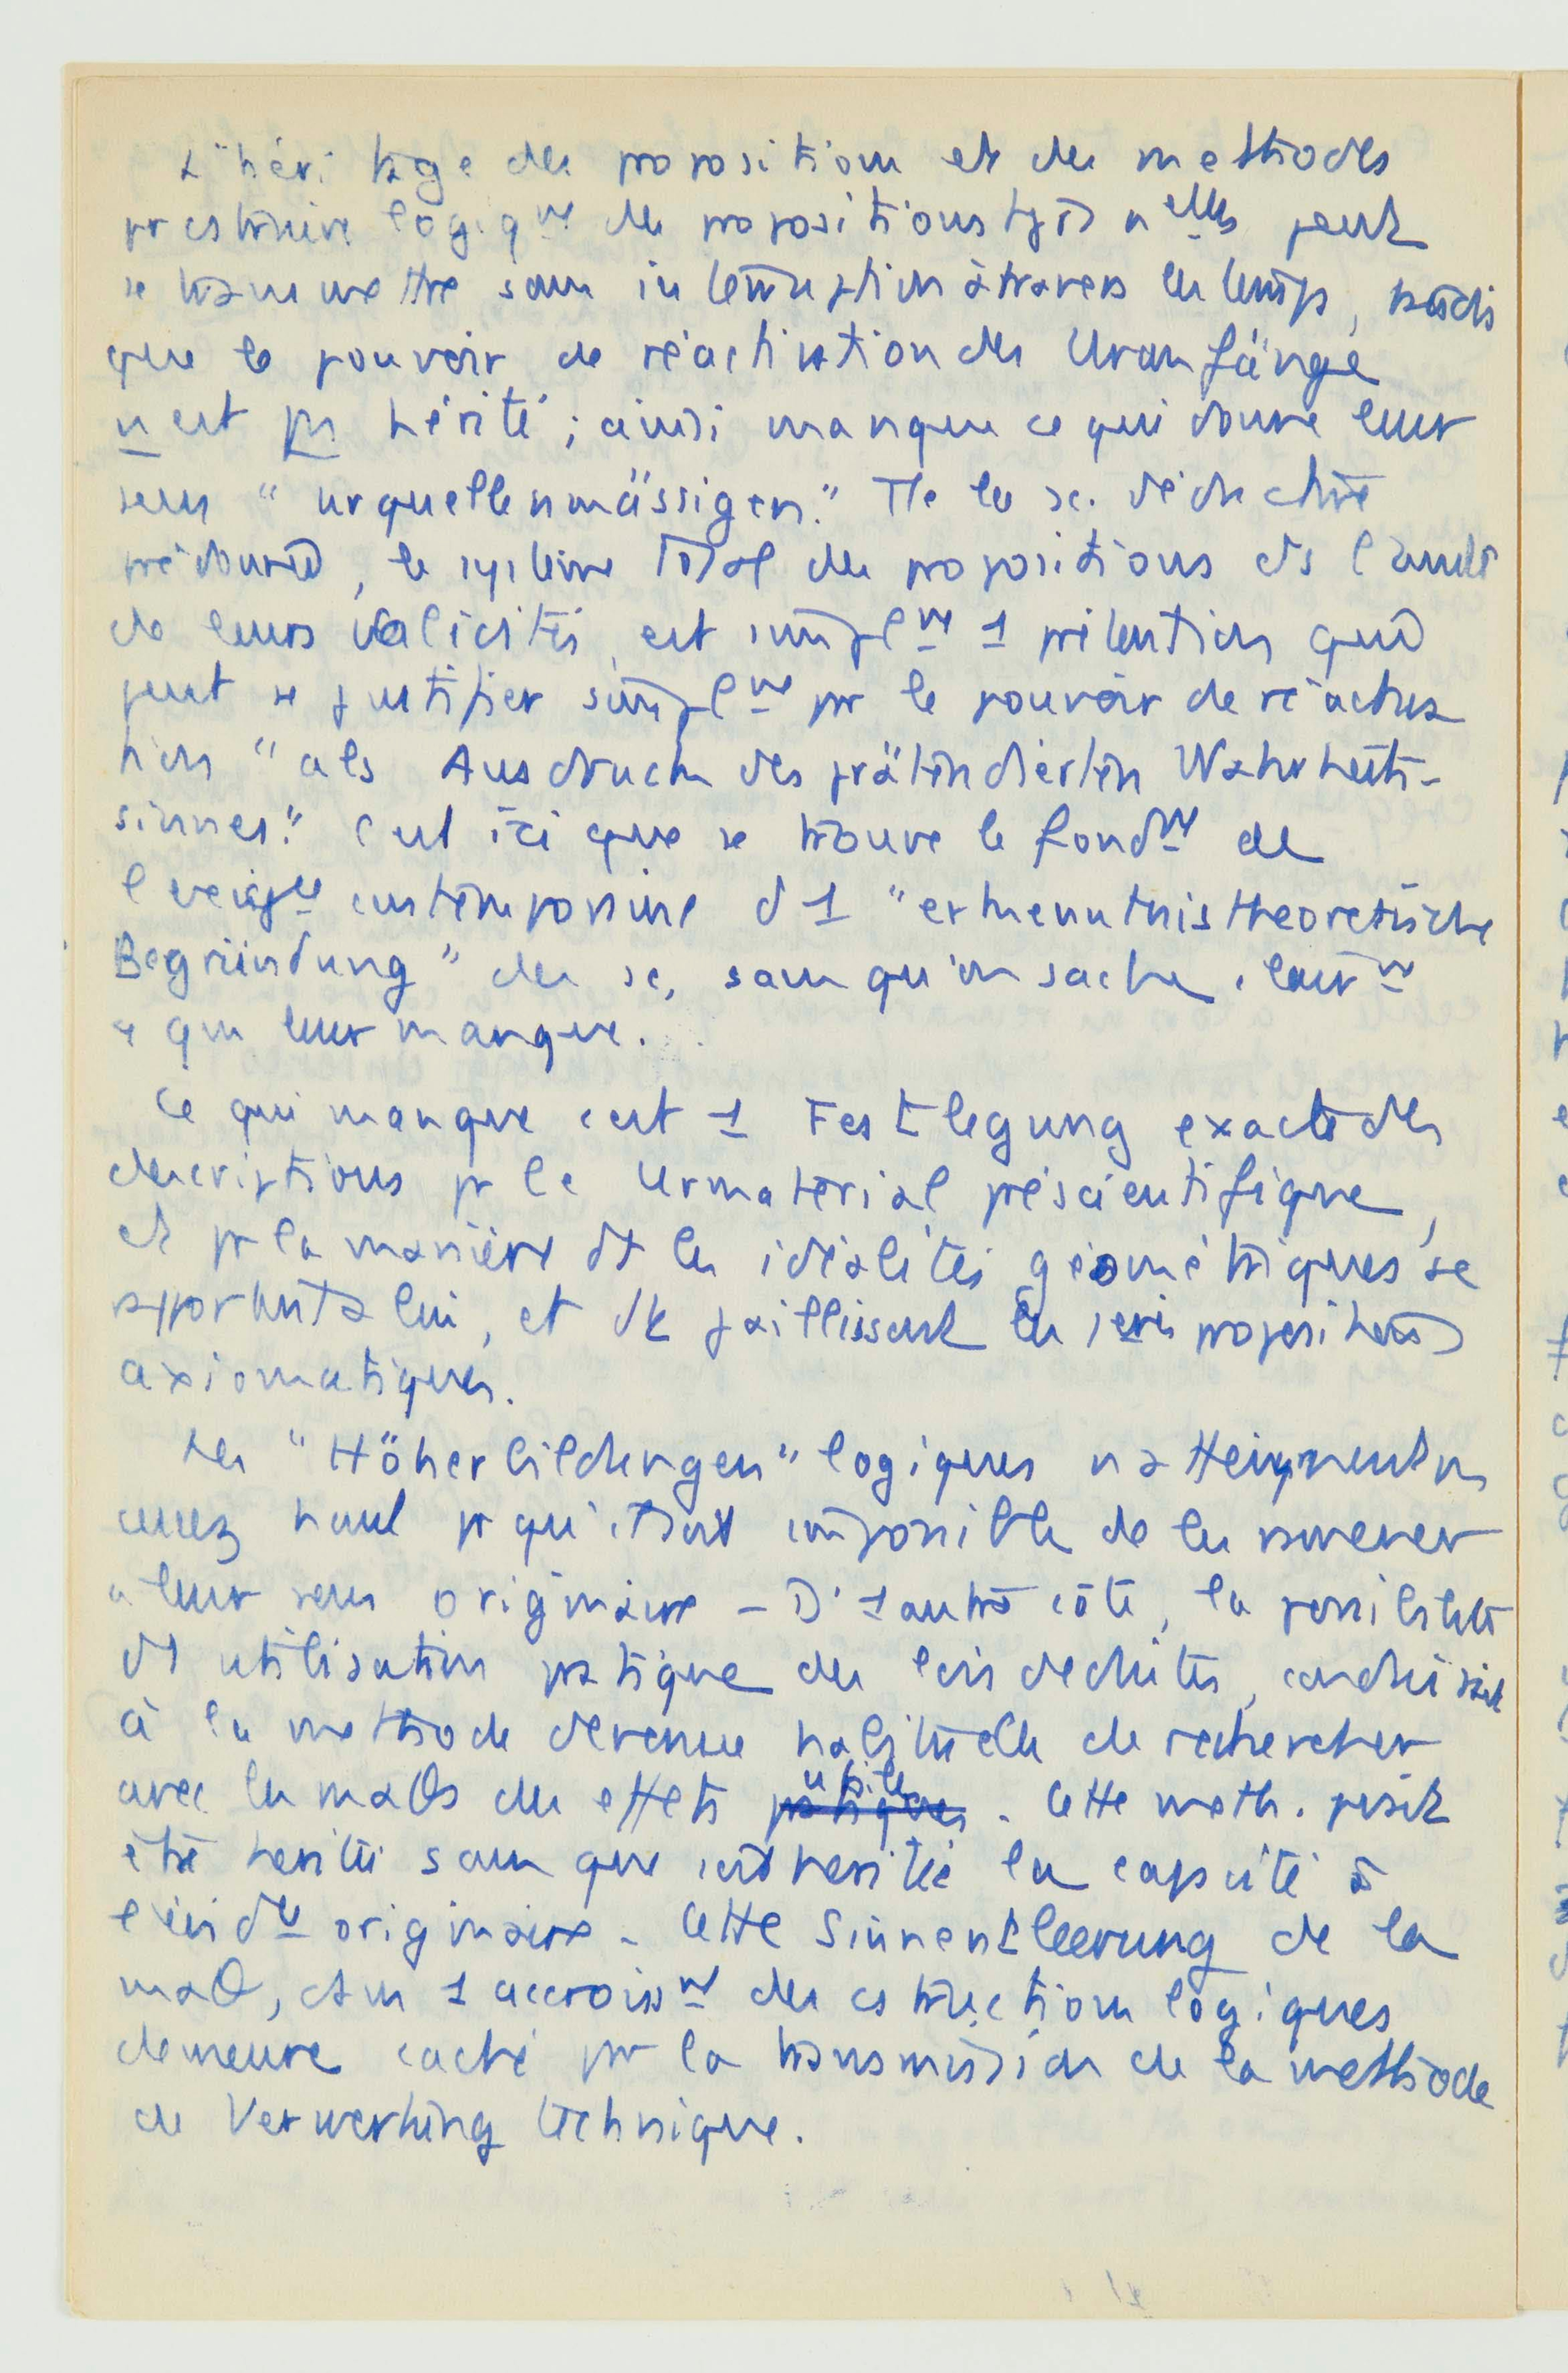 L'héritage des propositions et des methodes
pr cstruire logiqnt des propositions tjs nelles peut
se transmettre sans interruption à travers les temps, tandis
que le pouvoir de réactivation des Uranfänge
n'est pas hérité ; ainsi manque ce qui donne leur
sens "urquellenmässigen." Tte la sc. déductive
prédonnée, le système total des propositions ds l'unité
de leurs validités, est simplnt 1 prétention qui
peut se justifier simplnt pr le pouvoir de réactiva
tion "als Ausdruck des prätendierten Wahrheits-
sinnes." C'est ici que se trouve le fondnt de
l'exigce contemporaine d'1 "erkenntnistheoretische
Begründung" des sc, sans qu'on sache clairnt
ce qui leur manque.
Ce qui manque c'est 1 Festlegung exacte des
descriptions pr le Urmaterial préscientifique,
et pr la manière dt les idéalités géométriques se
rapportent à lui, et dt jaillissent les 1eres propositions
axiomatiques.
Les "Höherbildungen" logiques n'atteignent pas
assez haut pr qu'il soit impossible de les ramener
à leur sens originaire - D'1 autre côté, la possibilité
d'1 utilisation pratique des lois déduites, conduisait
à la methode devenue habituelle de rechercher
avec les maθs des effets utiles. Cette meth. pouvait
être héritée sans que soit héritée la capacité à
l'évidce originaire - Cette Sinnentleerung de la
maθ, ds 1 accroissnt des cstructions logiques
demeure caché pr la transmission de la methode
de Verwertung technique.